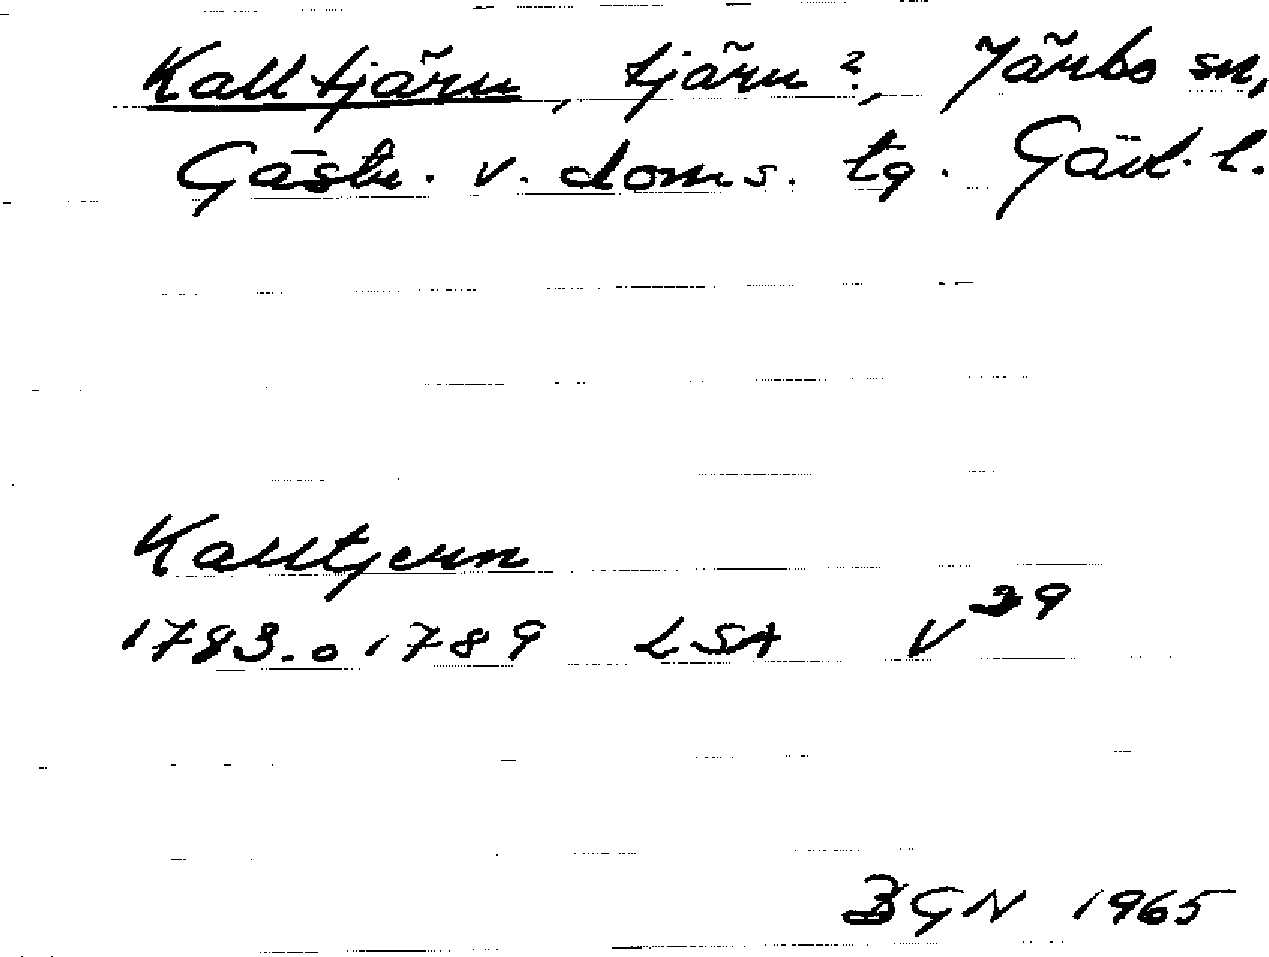 Kalltjärn, tjärn?, Järbo sn,
Gästr. v. doms. tg. Gävl. l.
Kalltjern
1783. o 1789 LSA V 29
BGN 1965